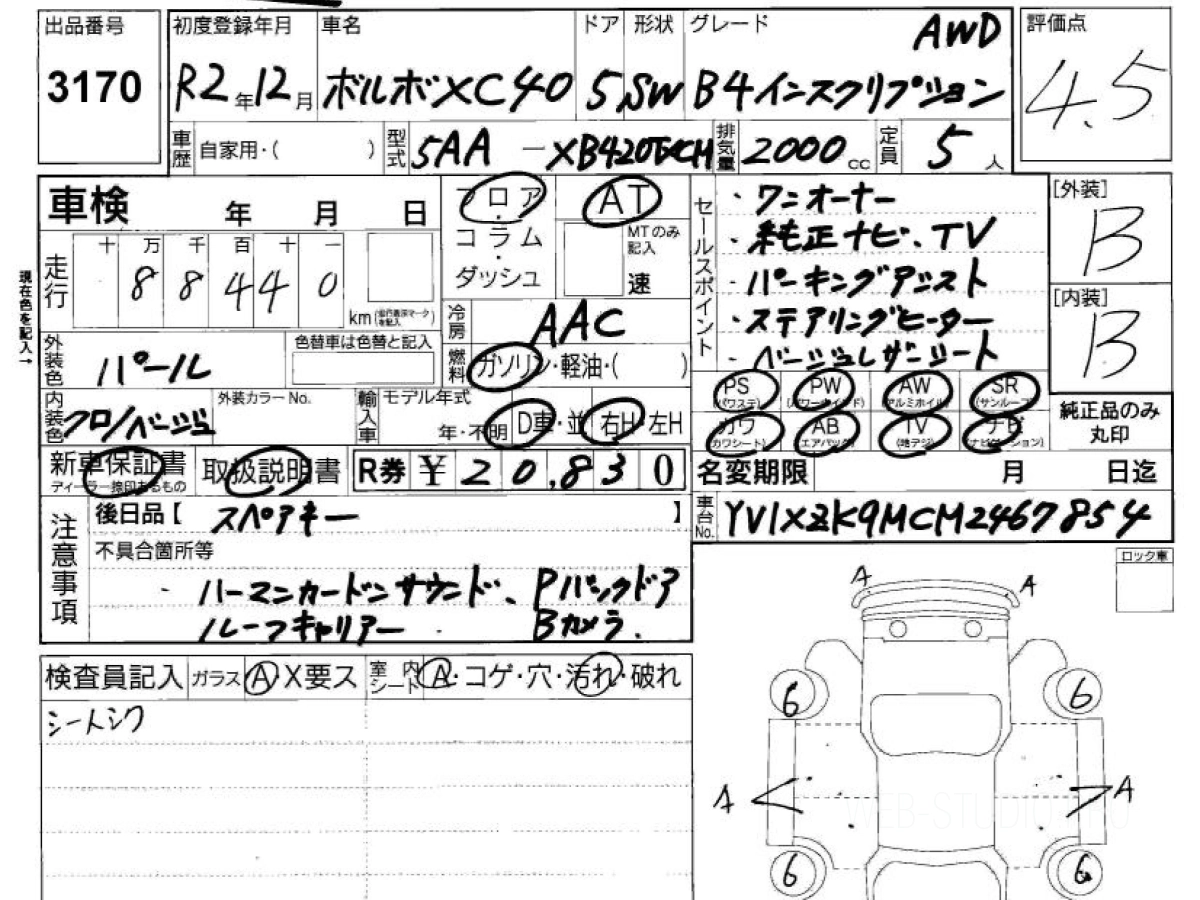 出品番号 初度登録年月 車名 ドア 形状 グレード 評価点
3170 R2年12月 ボルボXC40 5 SW B4インスクリプション AWD 4.5
車歴 自家用・( ) 型式 5AA-XB420TXCM 排気量 2000cc 定員 5人
車検 年 月 日
フロア・コラム・ダッシュ AT MTのみ記入 速
現在色を記入→
走行 十 万 千 百 十 一
88440 km (走行表示マークを記入)
冷房 AAC
外装色 パール 色替車は色替と記入
燃料 ガソリン・軽油・( )
内装色 クロ/ベージュ 外装カラーNo.
輸入車 モデル年式 年・不明 D車・並 右H・左H
セールスポイント
・ワンオーナー
・純正ナビ、TV
・パーキングアシスト
・ステアリングヒーター
・ベージュレザーシート
[外装]
B
[内装]
B
PS (パワステ) PW (パワーウインド) AW (アルミホイル) SR (サンルーフ)
カワ (カワシート) AB (エアバッグ) TV (地デジ) ナビ (ナビゲーション)
純正品のみ丸印
新車保証書 ディーラー捺印あるもの 取扱説明書 R券 ¥20,830
名変期限 月 日迄
車台No. YV1XZK9MCM2467854
注意事項
後日品【 スペアキー 】
不具合箇所等
・ハーマンカードンサウンド、Pバックドア
ルーフキャリアー Bカメラ.
検査員記入 ガラス A・X要ス 室内シート A・コゲ・穴・汚れ・破れ
シートシワ
ロック車
A A
6 6
A A
WEB-STUDIO.PRO
6 6